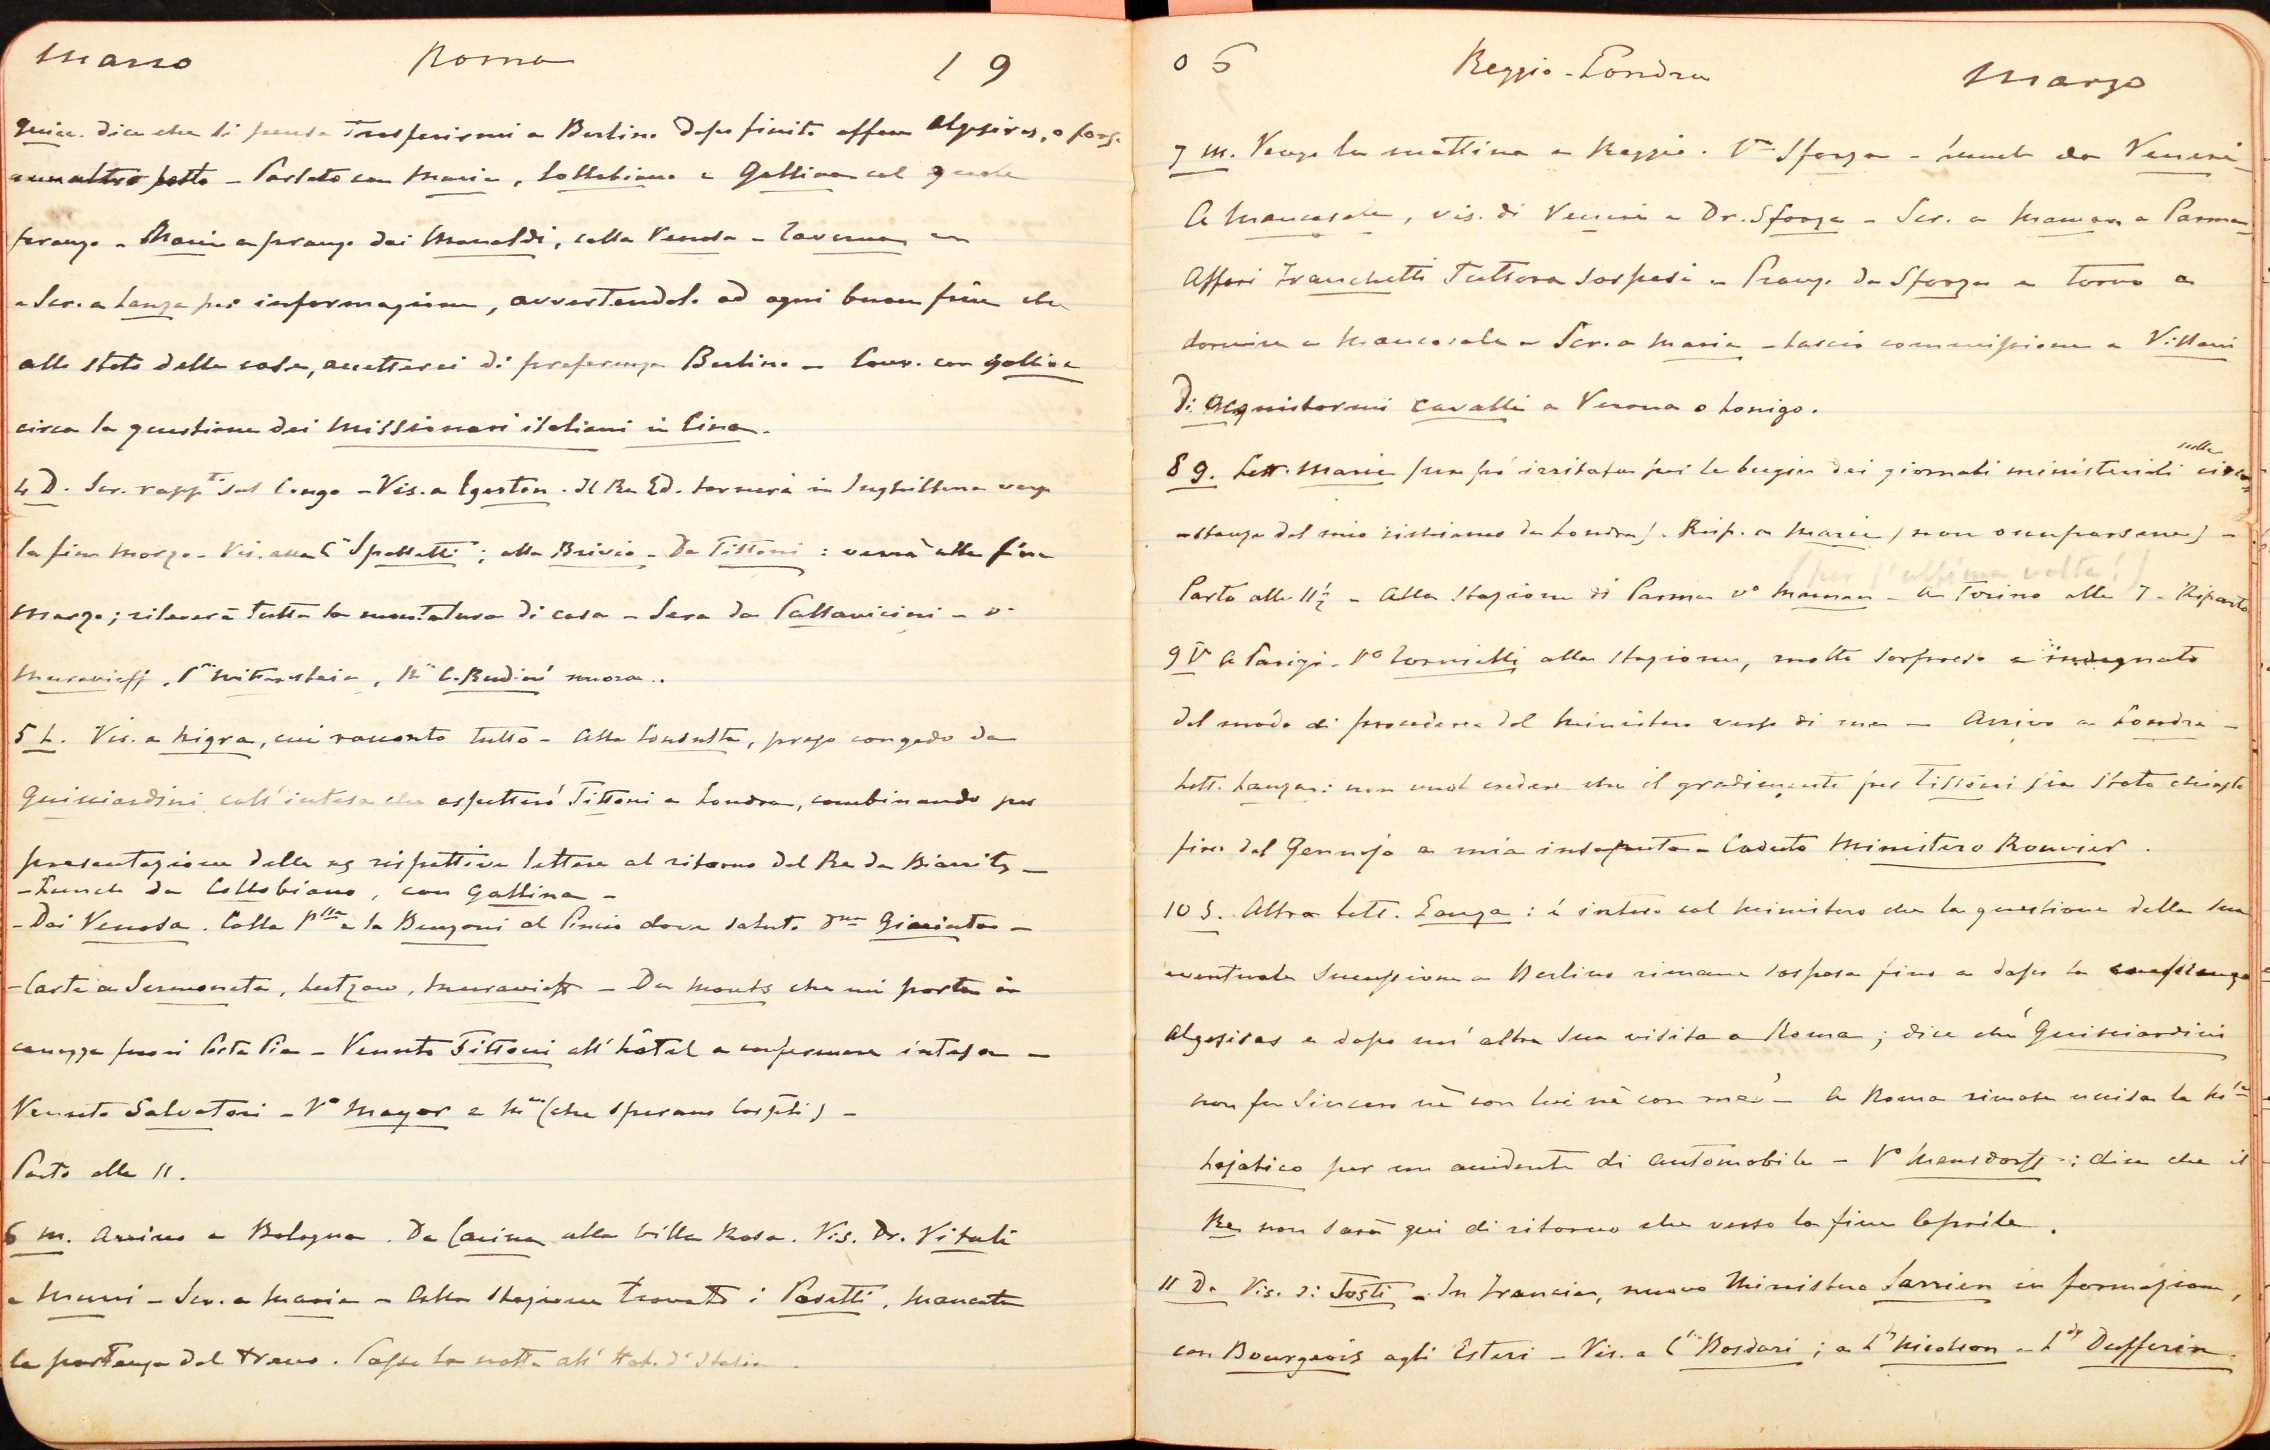 Marzo Roma 19
Guicc. dice che si pensa trasferirmi a Berlino dopo finito affare Algesiras, o forse
un altro posto - Parlato con Maria, Collobiano e Gallina col quale
pranzo - Maria a pranzo dai Monaldi, colla Venosa - Taverna
- Scr. a Lanza per informazione, avvertendolo ad ogni buon fine che
allo stato delle cose, accetterei di preferenza Berlino - Conv. con Gallina
circa la questione dei missionari italiani in Cina.
4 D. Scr. rapp.ti sul Congo - Vis. a Egerton. Il Re Ed. tornerà in Inghilterra verso
la fine Marzo - Vis. alla C.ssa Spalletti; alla Brivio - Da Tittoni: verrà alla fine
Marzo; rileverà tutta la montatura di casa - Sera da Pallavicini - v.
Muravieff, P.ssa Wittgenstein, M.sa C. Rudinì nuora.
5 L. Vis. a Nigra, cui racconto tutto - Alla Consulta, preso congedo da
Guicciardini coll'intesa che aspetterò Tittoni a Londra, combinando per
presentazione delle rispettive lettere al ritorno del Re da Biarritz -
- Lunch da Collobiano, con Gallina -
- Dai Venosa. Colla P.ssa e la Benzoni al Pincio dove saluto Giacinta -
- Carte a Sermoneta, Lutzow, Muravieff - Da Monts che mi porta in
carrozza fuori Porta Pia - Venuto Tittoni all'hôtel a confermare intesa -
Venuto Salvatori - V.o Mayor e M.me (che sperano Cospti) -
Parto alle 11.
6 M. Arrivo a Bologna. Da Carina alla Villa Rosa. Vis. Dr. Vitali
e Muni - Scr. a Maria - Alla stazione trovato i Pasetti, mancata
la partenza del treno. Passo la notte all'Hot. d'Italia.
06 Reggio - Londra Marzo
7 M. Vengo la mattina a Reggio. V.o Sforza - Lunch da Veneri -
A Mancasale, vis. di Veneri e Dr. Sforza - Scr. a Maman a Parma -
Affari Franchetti tuttora sospesi - Pranzo da Sforza e torno a
dormire a Mancasale - Scr. a Maria - Lascio commissione a Villani
di acquistarmi cavalli a Verona o Lonigo.
8 G. Lett. Maria (un pò irritata per le bugie dei giornali ministeriali sulle circo-
-stanze del mio richiamo da Londra). Risp. a Maria (non occuparsene) -
(per l'ultima volta!)
Parto alle 11½ - Alla stazione di Parma v.o Maman - A Torino alle 7 - Riparto
9 V. A Parigi - V.o Tornielli alla stazione, molto sorpreso e indegnato
del modo di procedere del Ministero verso di me - Arrivo a Londra -
Lett. Lanza: non vuol credere che il gradimento per Tittoni sia stato chiesto
fino dal Gennajo a mia insaputa - Caduto Ministero Rouvier.
10 S. Altra lett. Lanza: è inteso col Ministero che la questione della sua
eventuale successione a Berlino rimane sospesa fino a dopo la conferenza
Algesiras e dopo un'altra sua visita a Roma; dice che Guicciardini
non fu sincero nè con lui nè con me - A Roma rimasta uccisa la M.sa
Lajatico per un accidente di automobile - V.o Mensdorff: dice che il
Re non sarà qui di ritorno che verso la fine Aprile.
11 D. Vis. di Tosti - In Francia, nuovo Ministero Sarrien in formazione,
con Bourgeois agli Esteri - Vis. a C.ssa Bosdari; a L.y Nicolson - L.dy Dufferin